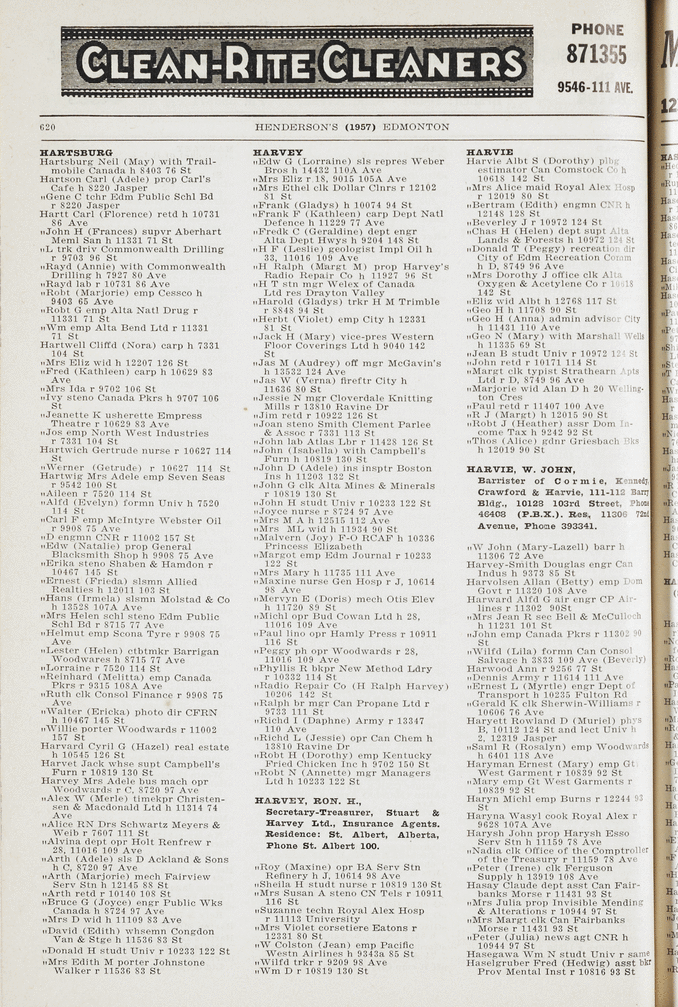 CLEAN-RITE CLEANERS
PHONE
871355
9546-111 AVE.
620
HENDERSON'S (1957) EDMONTON
HARTSBURG
Hartsburg Neil (May) with Trail-
mobile Canada h 8403 76 St
Hartson Carl (Adele) prop Carl's
Cafe h 8220 Jasper
„Gene C tchr Edm Public Schl Bd
r 8220 Jasper
Hartt Carl (Florence) retd h 10731
86 Ave
„John H (Frances) supvr Aberhart
Meml San h 11331 71 St
„L trk driv Commonwealth Drilling
r 9703 96 St
„Rayd (Annie) with Commonwealth
Drilling h 7927 80 Ave
„Rayd lab r 10731 86 Ave
„Robt (Marjorie) emp Cessco h
9403 65 Ave
„Robt G emp Alta Natl Drug r
11331 71 St
„Wm emp Alta Bend Ltd r 11331
71 St
Hartwell Cliffd (Nora) carp h 7331
104 St
„Mrs Eliz wid h 12207 126 St
„Fred (Kathleen) carp h 10629 83
Ave
„Mrs Ida r 9702 106 St
„Ivy steno Canada Pkrs h 9707 106
St
„Jeanette K usherette Empress
Theatre r 10629 83 Ave
„Jos emp North West Industries
r 7331 104 St
Hartwich Gertrude nurse r 10627 114
St
„Werner (Getrude) r 10627 114 St
Hartwig Mrs Adele emp Seven Seas
r 9542 100 St
„Aileen r 7520 114 St
„Alfd (Evelyn) formn Univ h 7520
114 St
„Carl F emp McIntyre Webster Oil
r 9908 75 Ave
„D engmn CNR r 11002 157 St
„Edw (Natalie) prop General
Blacksmith Shop h 9908 75 Ave
„Erika steno Shaben & Hamdon r
10467 145 St
„Ernest (Frieda) slsmn Allied
Realties h 12011 103 St
„Hans (Irmela) slsmn Molstad & Co
h 13528 107A Ave
„Mrs Helen schl steno Edm Public
Schl Bd r 8715 77 Ave
„Helmut emp Scona Tyre r 9908 75
Ave
„Lester (Helen) ctbtmkr Barrigan
Woodwares h 8715 77 Ave
„Lorraine r 7520 114 St
„Reinhard (Melitta) emp Canada
Pkrs r 9315 108A Ave
„Ruth clk Consol Finance r 9908 75
Ave
„Walter (Ericka) photo dir CFRN
h 10467 145 St
„Willie porter Woodwards r 11002
157 St
Harvard Cyril G (Hazel) real estate
h 10545 126 St
Harvet Jack whse supt Campbell's
Furn r 10819 130 St
Harvey Mrs Adele bus mach opr
Woodwards r C, 8720 97 Ave
„Alex W (Merle) timekpr Christen-
sen & Macdonald Ltd h 11314 74
Ave
„Alice RN Drs Schwartz Meyers &
Weib r 7607 111 St
„Alvina dept opr Holt Renfrew r
28, 11016 109 Ave
„Arth (Adele) sls D Ackland & Sons
h C, 8720 97 Ave
„Arth (Marjorie) mech Fairview
Serv Stn h 12145 88 St
„Arth retd r 10140 108 St
„Bruce G (Joyce) engr Public Wks
Canada h 8724 97 Ave
„Mrs D wid h 11109 83 Ave
„David (Edith) whsemn Congdon
Van & Stge h 11536 83 St
„Donald H studt Univ r 10233 122 St
„Mrs Edith M porter Johnstone
Walker r 11536 83 St
HARVEY
„Edw G (Lorraine) sls repres Weber
Bros h 14432 110A Ave
„Mrs Eliz r 18, 9015 105A Ave
„Mrs Ethel clk Dollar Clnrs r 12102
81 St
„Frank (Gladys) h 10074 94 St
„Frank F (Kathleen) carp Dept Natl
Defence h 11229 77 Ave
„Fredk C (Geraldine) dept engr
Alta Dept Hwys h 9204 148 St
„H F (Leslie) geologist Impl Oil h
33, 11016 109 Ave
„H Ralph (Margt M) prop Harvey's
Radio Repair Co h 11927 96 St
„H T stn mgr Welex of Canada
Ltd res Drayton Valley
„Harold (Gladys) trkr H M Trimble
r 8848 94 St
„Herbt (Violet) emp City h 12331
81 St
„Jack H (Mary) vice-pres Western
Floor Coverings Ltd h 9040 142
St
„Jas M (Audrey) off mgr McGavin's
h 13532 124 Ave
„Jas W (Verna) fireftr City h
11636 80 St
„Jessie N mgr Cloverdale Knitting
Mills r 13810 Ravine Dr
„Jim retd r 10922 126 St
„Joan steno Smith Clement Parlee
& Assoc r 7331 113 St
„John lab Atlas Lbr r 11428 126 St
„John (Isabella) with Campbell's
Furn h 10819 130 St
„John D (Adele) ins insptr Boston
Ins h 11203 132 St
„John G clk Alta Mines & Minerals
r 10819 130 St
„John H studt Univ r 10233 122 St
„Joyce nurse r 8724 97 Ave
„Mrs M A h 12515 112 Ave
„Mrs ML wid h 11934 90 St
„Malvern (Joy) F-O RCAF h 10336
Princess Elizabeth
„Margot emp Edm Journal r 10233
122 St
„Mrs Mary h 11735 111 Ave
„Maxine nurse Gen Hosp r J, 10614
98 Ave
„Mervyn E (Doris) mech Otis Elev
h 11720 89 St
„Michl opr Bud Cowan Ltd h 28,
11016 109 Ave
„Paul lino opr Hamly Press r 10911
116 St
„Peggy ph opr Woodwards r 28,
11016 109 Ave
„Phyllis R bkpr New Method Ldry
r 10332 114 St
„Radio Repair Co (H Ralph Harvey)
10206 142 St
„Ralph br mgr Can Propane Ltd r
9733 111 St
„Richd I (Daphne) Army r 13347
110 Ave
„Richd L (Jessie) opr Can Chem h
13810 Ravine Dr
„Robt H (Dorothy) emp Kentucky
Fried Chicken Inc h 9702 150 St
„Robt N (Annette) mgr Managers
Ltd h 10233 122 St
HARVEY, RON. H.,
Secretary-Treasurer, Stuart &
Harvey Ltd., Insurance Agents.
Residence: St. Albert, Alberta,
Phone St. Albert 100.
„Roy (Maxine) opr BA Serv Stn
Refinery h J, 10614 98 Ave
„Sheila H studt nurse r 10819 130 St
„Mrs Susan A steno CN Tels r 10911
116 St
„Suzanne techn Royal Alex Hosp
r 11113 University
„Mrs Violet corsetiere Eatons r
12331 80 St
„W Colston (Jean) emp Pacific
Westn Airlines h 9343a 85 St
„Wilfd trkr r 9209 98 Ave
„Wm D r 10819 130 St
HARVIE
Harvie Albt S (Dorothy) plbg
estimator Can Comstock Co h
10618 142 St
„Mrs Alice maid Royal Alex Hosp
r 12019 80 St
„Bertram (Edith) engmn CNR h
12148 128 St
„Beverley J r 10972 124 St
„Chas H (Helen) dept supt Alta
Lands & Forests h 10972 124 St
„Donald T (Peggy) recreation dir
City of Edm Recreation Comm
h D, 8749 96 Ave
„Mrs Dorothy J office clk Alta
Oxygen & Acetylene Co r 10618
142 St
„Eliz wid Albt h 12768 117 St
„Geo H h 11708 90 St
„Geo H (Anna) admin advisor City
h 11431 110 Ave
„Geo N (Mary) with Marshall Wells
h 11335 69 St
„Jean B studt Univ r 10972 124 St
„John retd r 10171 114 St
„Margt clk typist Strathearn Apts
Ltd r D, 8749 96 Ave
„Marjorie wid Alan D h 20 Welling-
ton Cres
„Paul retd r 11407 100 Ave
„R J (Margt) h 12015 90 St
„Robt J (Heather) assr Dom In-
come Tax h 9242 92 St
„Thos (Alice) gdnr Griesbach Bks
h 12019 90 St
HARVIE, W. JOHN,
Barrister of Cormie, Kennedy,
Crawford & Harvie, 111-112 Barry
Bldg., 10128 103rd Street, Phone
46408 (P.B.X.). Res, 11306 72nd
Avenue, Phone 393341.
„W John (Mary-Lazell) barr h
11306 72 Ave
Harvey-Smith Douglas engr Can
Indus h 9373 85 St
Harvolsen Allan (Betty) emp Dom
Govt r 11320 108 Ave
Harward Alfd G air engr CP Air-
lines r 11302 90St
„Mrs Jean R sec Bell & McCulloch
h 11231 101 St
„John emp Canada Pkrs r 11302 90
St
„Wilfd (Lila) formn Can Consol
Salvage h 3833 109 Ave (Beverly)
Harwood Ann r 9256 77 St
„Dennis Army r 11614 111 Ave
„Ernest L (Myrtle) engr Dept of
Transport h 10235 Fulton Rd
„Gerald K clk Sherwin-Williams r
10606 76 Ave
Haryett Rowland D (Muriel) phys
B, 10112 124 St and lect Univ h
2, 12319 Jasper
„Saml R (Rosalyn) emp Woodwards
h 6401 118 Ave
Haryman Ernest (Mary) emp Gt
West Garment r 10839 92 St
„Mary emp Gt West Garments r
10839 92 St
Haryn Michl emp Burns r 12244 93
St
Haryna Wasyl cook Royal Alex r
9628 107A Ave
Harysh John prop Harysh Esso
Serv Stn h 11159 78 Ave
„Nadia clk Office of the Comptroller
of the Treasury r 11159 78 Ave
„Peter (Irene) clk Ferguson
Supply h 13919 108 Ave
Hasay Claude dept asst Can Fair-
banks Morse r 11431 93 St
„Mrs Julia prop Invisible Mending
& Alterations r 10944 97 St
„Mrs Margt clk Can Fairbanks
Morse r 11431 93 St
„Peter (Julia) news agt CNR h
10944 97 St
Hasegawa Wm N studt Univ r same
Haselgruber Fred (Hedwig) asst bkr
Prov Mental Inst r 10816 93 St